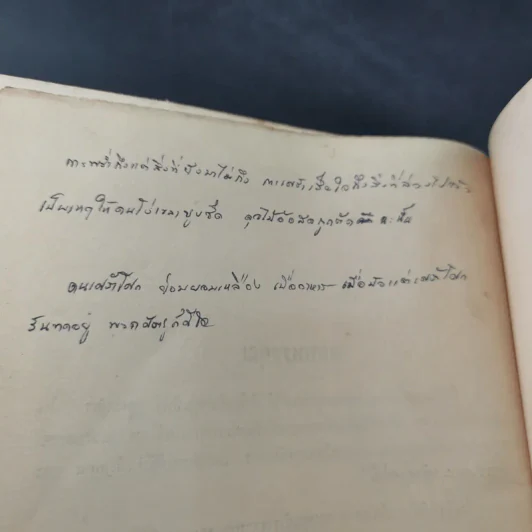 การพร่ำถึงแต่สิ่งที่ยังมาไม่ถึง การเศร้าเสียใจถึงสิ่งที่ล่วงไปแล้ว
เป็นเหตุให้คนโง่เขลาซูบซีด ดุจไม้อ้อสดถูกตัด ฉะนั้น
คนเศร้าโศก ย่อมผอมเหลือง เบื่ออาหาร เมื่อมัวแต่เศร้าโศก
รันทดอยู่ พวกศัตรูก็ดีใจ